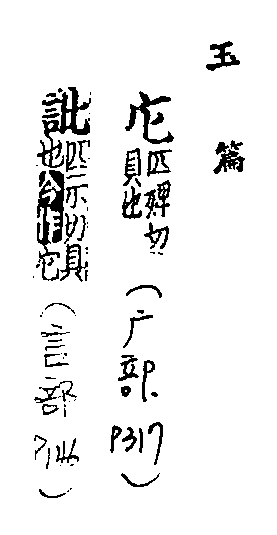 玉篇
庀匹婢切具也(广部P317)
訿匹尔切具也今作庀(言部P146)